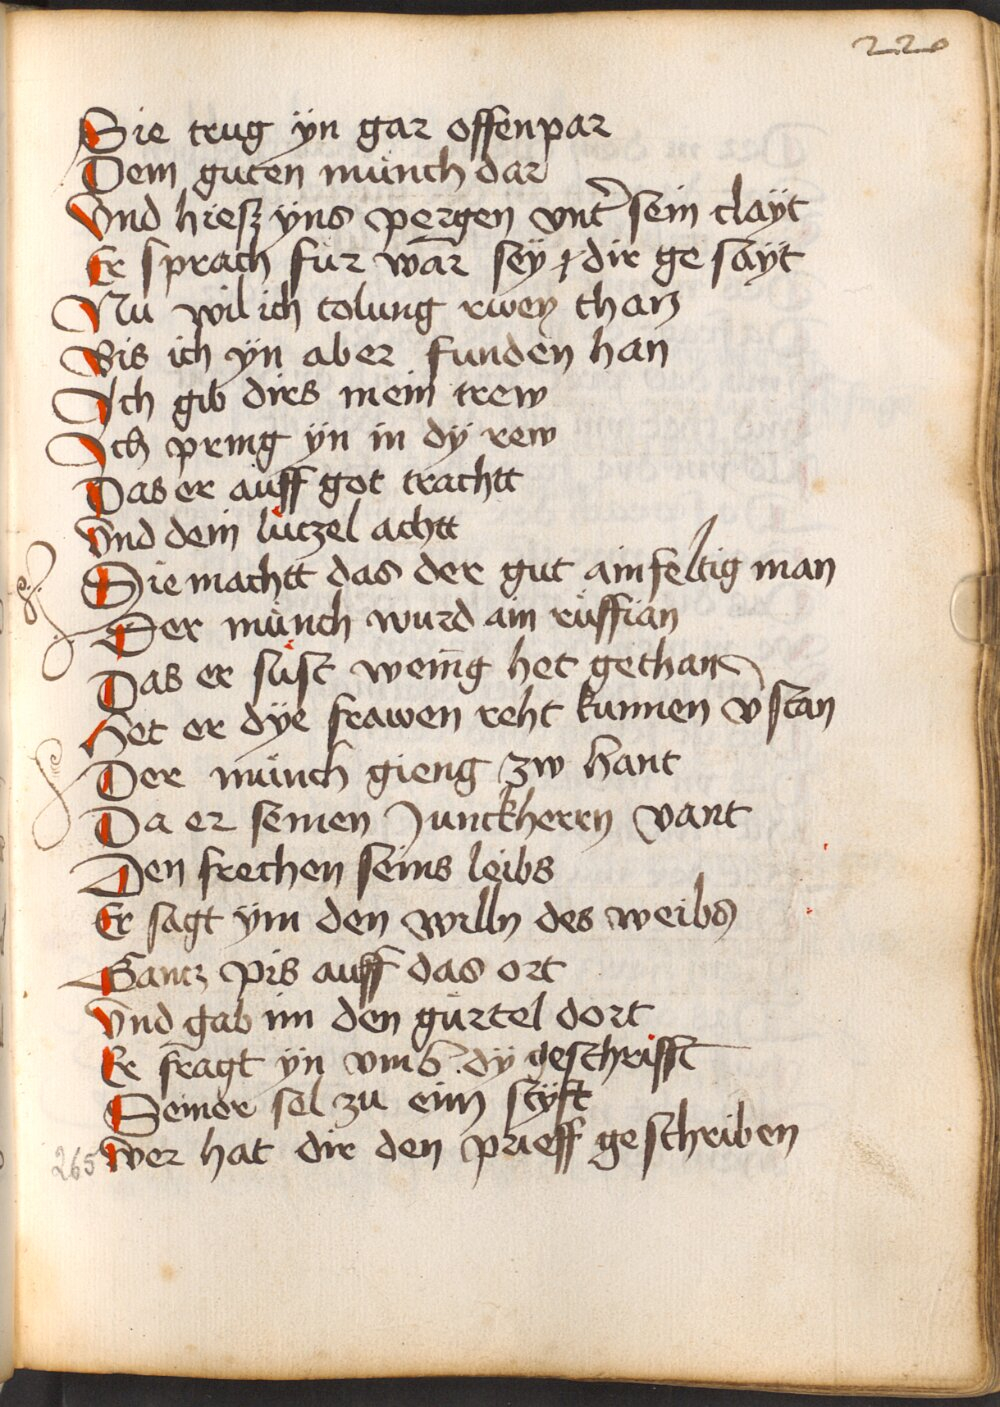 220
Sie trug ÿn gar offenpar
Dem guten münch dar
Vnd hiesz ÿns pergen vnt̃ sein claÿt
Er sprach für war seÿ dir ge saÿt
Nu wil ich tolung rwen than
Bis ich ÿn aber funden han
Ich gib dirs mein trew
Ich pring ÿn in dÿ rew
Das er auff got trachtt
Vnd dein lüczel achtt
Die machtt das der gut ainfeltig man
Der münch wurd ain rüffian
Das er sust wenig het gethan
Het er dÿe frawen reht kunnen v̄stan
Der münch gieng zw hant
Da er seinen Junckherrn vant
Den frechen seins leibs
Er sagt ÿm den willn des weibs
Gancz pis auff das ort
Vnd gab im den gürtel dort
Er fragt ÿn vmb dÿ geschrifft
Seiner sel zu eim styft
Wer hat dir den prieff geschriben
265